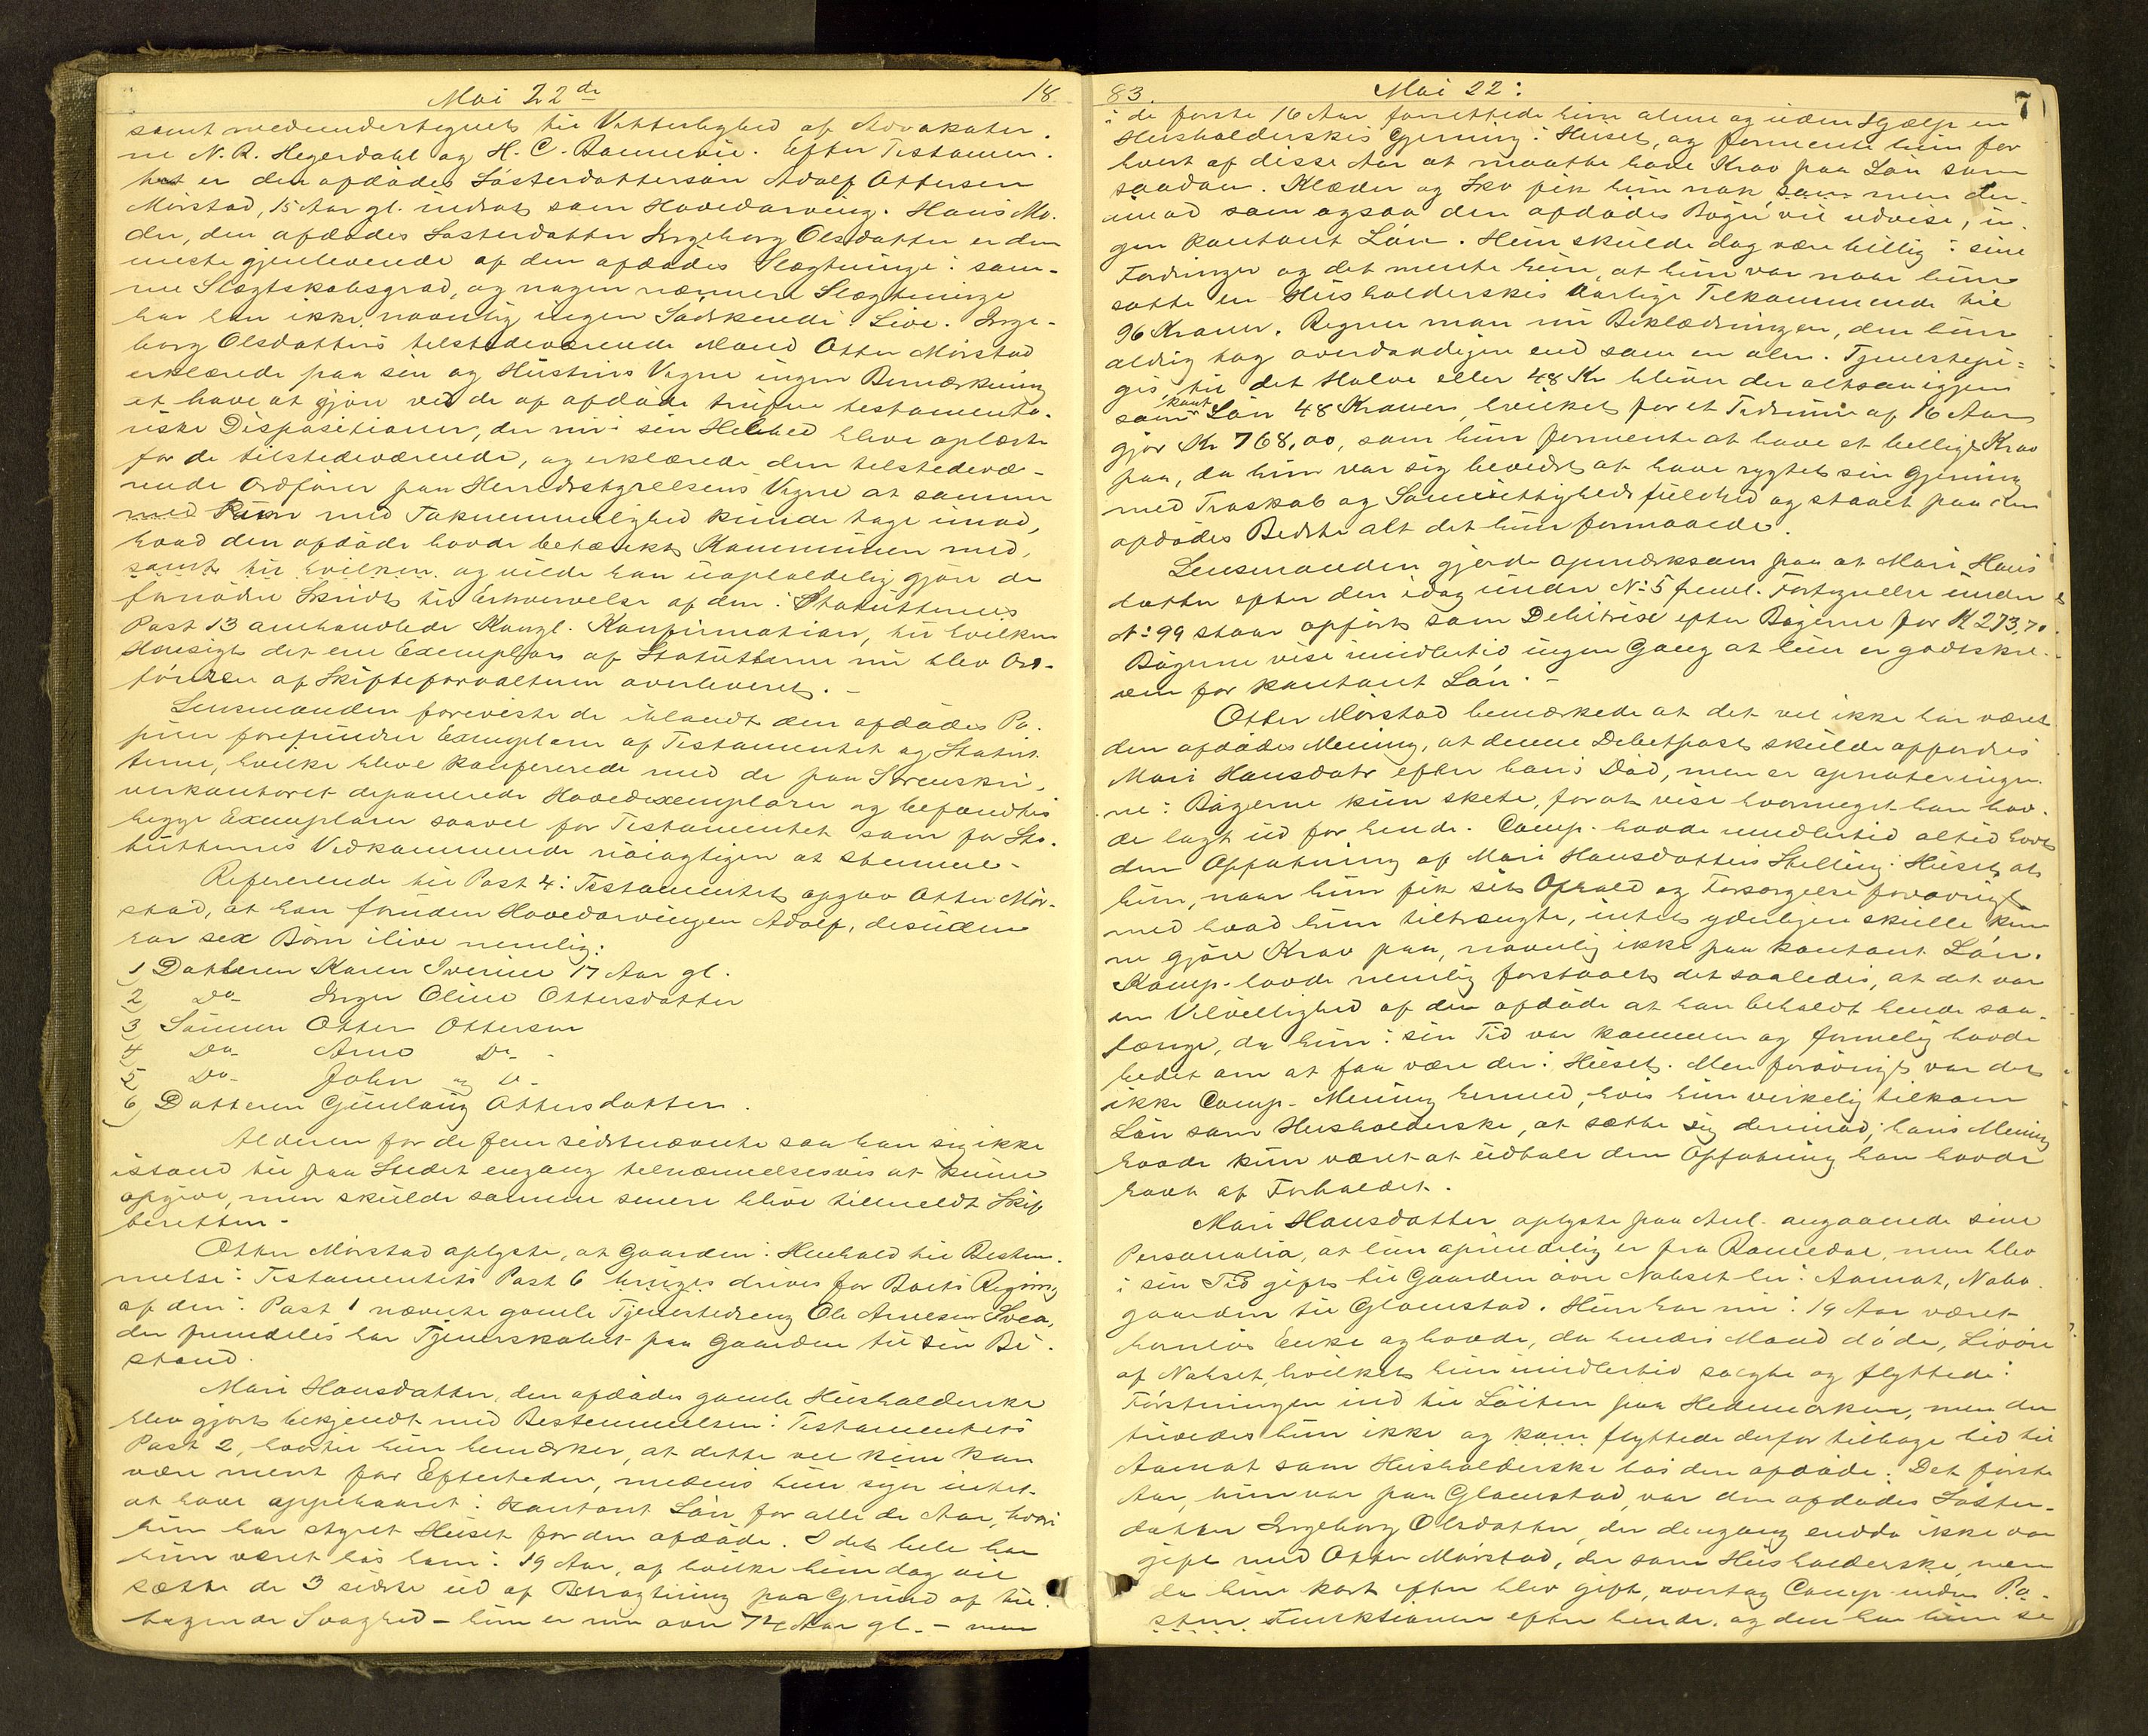 Mai 22de 18
samt medundertegnet til Vitterlighed af Advokater-
ne N. R. Hegerdahl og H. C. Bannevie. Efter Testamen-
tet er den afdødes Søsterdattersøn Adolf Ottersen
Mørstad, 15 Aar gl. indsat som Hovedarving. Hans Mo-
der, den afdødes Søsterdatter Ingeborg Olsdatter er den
eneste gjenlevende af den afdødes Slægtninge i sam-
me Slægtskabsgrad, og nogen nærmere Slægtninge
har han ikke, navnlig ingen Sødskende i Live. Inge-
borg Olsdatters tilstedeværende Mand Otter Mørstad
erklærede paa sin og Hustrus Vegne ingen Bemærkning
at have at gjøre ved de af afdøde trufne testamenta-
riske Dispositioner, der nu i sin Helhed bleve oplæste
for de tilstedeværende, og erklærede den tilstedevæ-
rende Ordfører paa Herredsstyrelsens Vegne at samme
med kun med Taknemmelighed kunde tage imod,
hvad den afdøde havde betænkt Kommunen med,
samt til hvilken og vilde han uopholdelig gjøre de
fornødne Skridt til Erhvervelse af den i Statutternes
Post 13 omhandlede Kongl. Konfirmation, til hvilken
Hensigt det ene Exemplar af Statutterne nu blev Ord-
føreren af Skifteforvalteren overleveret. -
Lensmanden foreviste de iblandt den afdødes Pa-
pirer forefundne Exemplarer af Testamentet og Statut-
terne, hvilke bleve konfererede med de paa Sorenskri-
verkontoret deponerede Hovedexemplarer og befandtes
begge Exemplarer saavel for Testamentet som for Sta-
tutternes Vedkommende nøiagtigen at stemme -
Refererende til Post 4 i Testamentet opgav Otter Mør-
stad, at han foruden Hovedarvingen Adolf, desuden
har sex Børn ilive nemlig:
1) Datteren Karen Iverine 17 Aar gl.
2) Do- Inger Oline Ottersdatter
3) Sønnen Otter Ottersen
4) Do- Arne Do-
5) Do- John og Do-
6) Datteren Gunlaug Ottersdatter.
Alderen for de fem sidstnævnte saa han sig ikke
istand til paa Stedet engang tilnærmelsesvis at kunne
opgive, men skulde samme senere blive tilmeldt Skif
teretten -
Otter Mørstad oplyste, at Gaarden i Henhold til Bestem-
melse i Testamentets Post 6 bruges drives for Boets Regning
af den i Post 1 nævnte gamle Tjenestedreng Ole Arnesen Svea,
der fremdeles har Tjenerskabet paa Gaarden til sin Bi-
stand.
Mari Hansdatter, den afdødes gamle Husholderske
blev gjort bekjendt med Bestemmelsen i Testamentets
Post 2, hvortil hun bemærker, at dette vel kun kan
være ment for Eftertiden, medens hun siger intet
at have oppebaaret i kontant Løn for alle de Aar, hvori
hun har styret Huset for den afdøde. I det hele har
hun været hos ham i 19 Aar, af hvilke hun dog vil
sætte de 3 sidste ud af Betragtning paa Grund af til-
tagende Svaghed - hun er nu over 74 Aar gl. - men
83. Mai 22: 7
i de første 16 Aar forrettede hun alene og uden Hjælp en
Husholderskes Gjerning i Huset, og formente hun for
hvert af disse Aar at maatte have Krav paa Løn som
saadan. Klæder og Sko fik hun nok, som men der-
imod som ogsaa den afdødes Bøger vil udvise, in-
gen kontant Løn. Hun skulde dog være billig i sine
Fordringer og det mente hun, at hun var naar hun
satte en Husholderskes aarlige Tilkommende til
96 Kroner. Regner man nu Beklædningen, den hun
aldrig tog overdaadigere end som en alm. Tjenestepi-
ges, til det Halve eller 48 Kr bliver der altsaa igjen
som kont Løn 48 Kroner, hvilket for et Tidsrum af 16 Aar
gjør Kr 768,00, som hun formente at have et billigt Krav
paa, da hun var sig bevidst at have rygtet sin Gjerning
med Troskab og Samvittighedsfuldhed og staaet paa den
afdødes Bedste alt det hun formaaede.
Lensmanden gjorde opmærksom paa at Mari Hans
datter efter den idag under No 5 freml. Fortegnelse under
No 99 staar opført som Debitrise efter Bøgerne for Kr 273,70.
Bøgerne vise imidlertid ingen Gang at hun er godtskre-
ven for kontant Løn. -
Otter Mørstad bemærkede at det vel ikke har været
den afdødes Mening, at denne Debetpost skulde affordres
Mari Hansdatr efter hans Død, men er opnoteringer-
ne i Bøgerne kun skete, for at vise hvormeget han hav-
de lagt ud for hende. Comp. havde imidlertid altid havt
den Opfatning af Mari Hansdatters Stilling i Huset, at
hun, naar hun fik sit Ophold og Forsørgelse forøvrigt
med hvad hun tiltrængte, intet yderligere skulle kun-
ne gjøre Krav paa, navnlig ikke paa kontant Løn.
Komp. havde nemlig forstaaet det saaledes, at det var
en Velvillighed af den afdøde at han beholdt hende saa-
længe, da hun i sin Tid var kommen og formelig havde
bedet om at faa være der i Huset. Men forøvrigt var det
ikke Comp. Mening hermed, hvis hun virkelig tilkom
Løn som Husholderske, at sætte sig derimod; hans Mening
havde kun været at udtale den Opfatning han havde
havt af Forholdet.
Mari Hansdatter oplyste paa Anl. angaaende sine
Personalia, at hun oprindelig er fra Romedal, men blev
i sin Tid gift til Gaarden øvre Nabset her i Aamot, Nabo-
gaarden til Glomstad. Hun har nu i 19 Aar været
barnløs Enke og havde, da hendes Mand døde, Livøre
af Nabset, hvilket hun imidlertid solgte og flyttede i
Førstningen ind til Løiten paa Hedemarken, men der
trivedes hun ikke og kom flyttede derfor tilbage hid til
Aamot som Husholderske hos den afdøde. Det første
Aar, hun var paa Glomstad, var den afdødes Søster-
datter Ingeborg Olsdatter, der dengang endda ikke var
gift med Otter Mørstad, der som Husholderske, men
da hun kort efter blev gift, overtog Comp. inden Pa-
sten Funktionen efter hende, og den har hun si